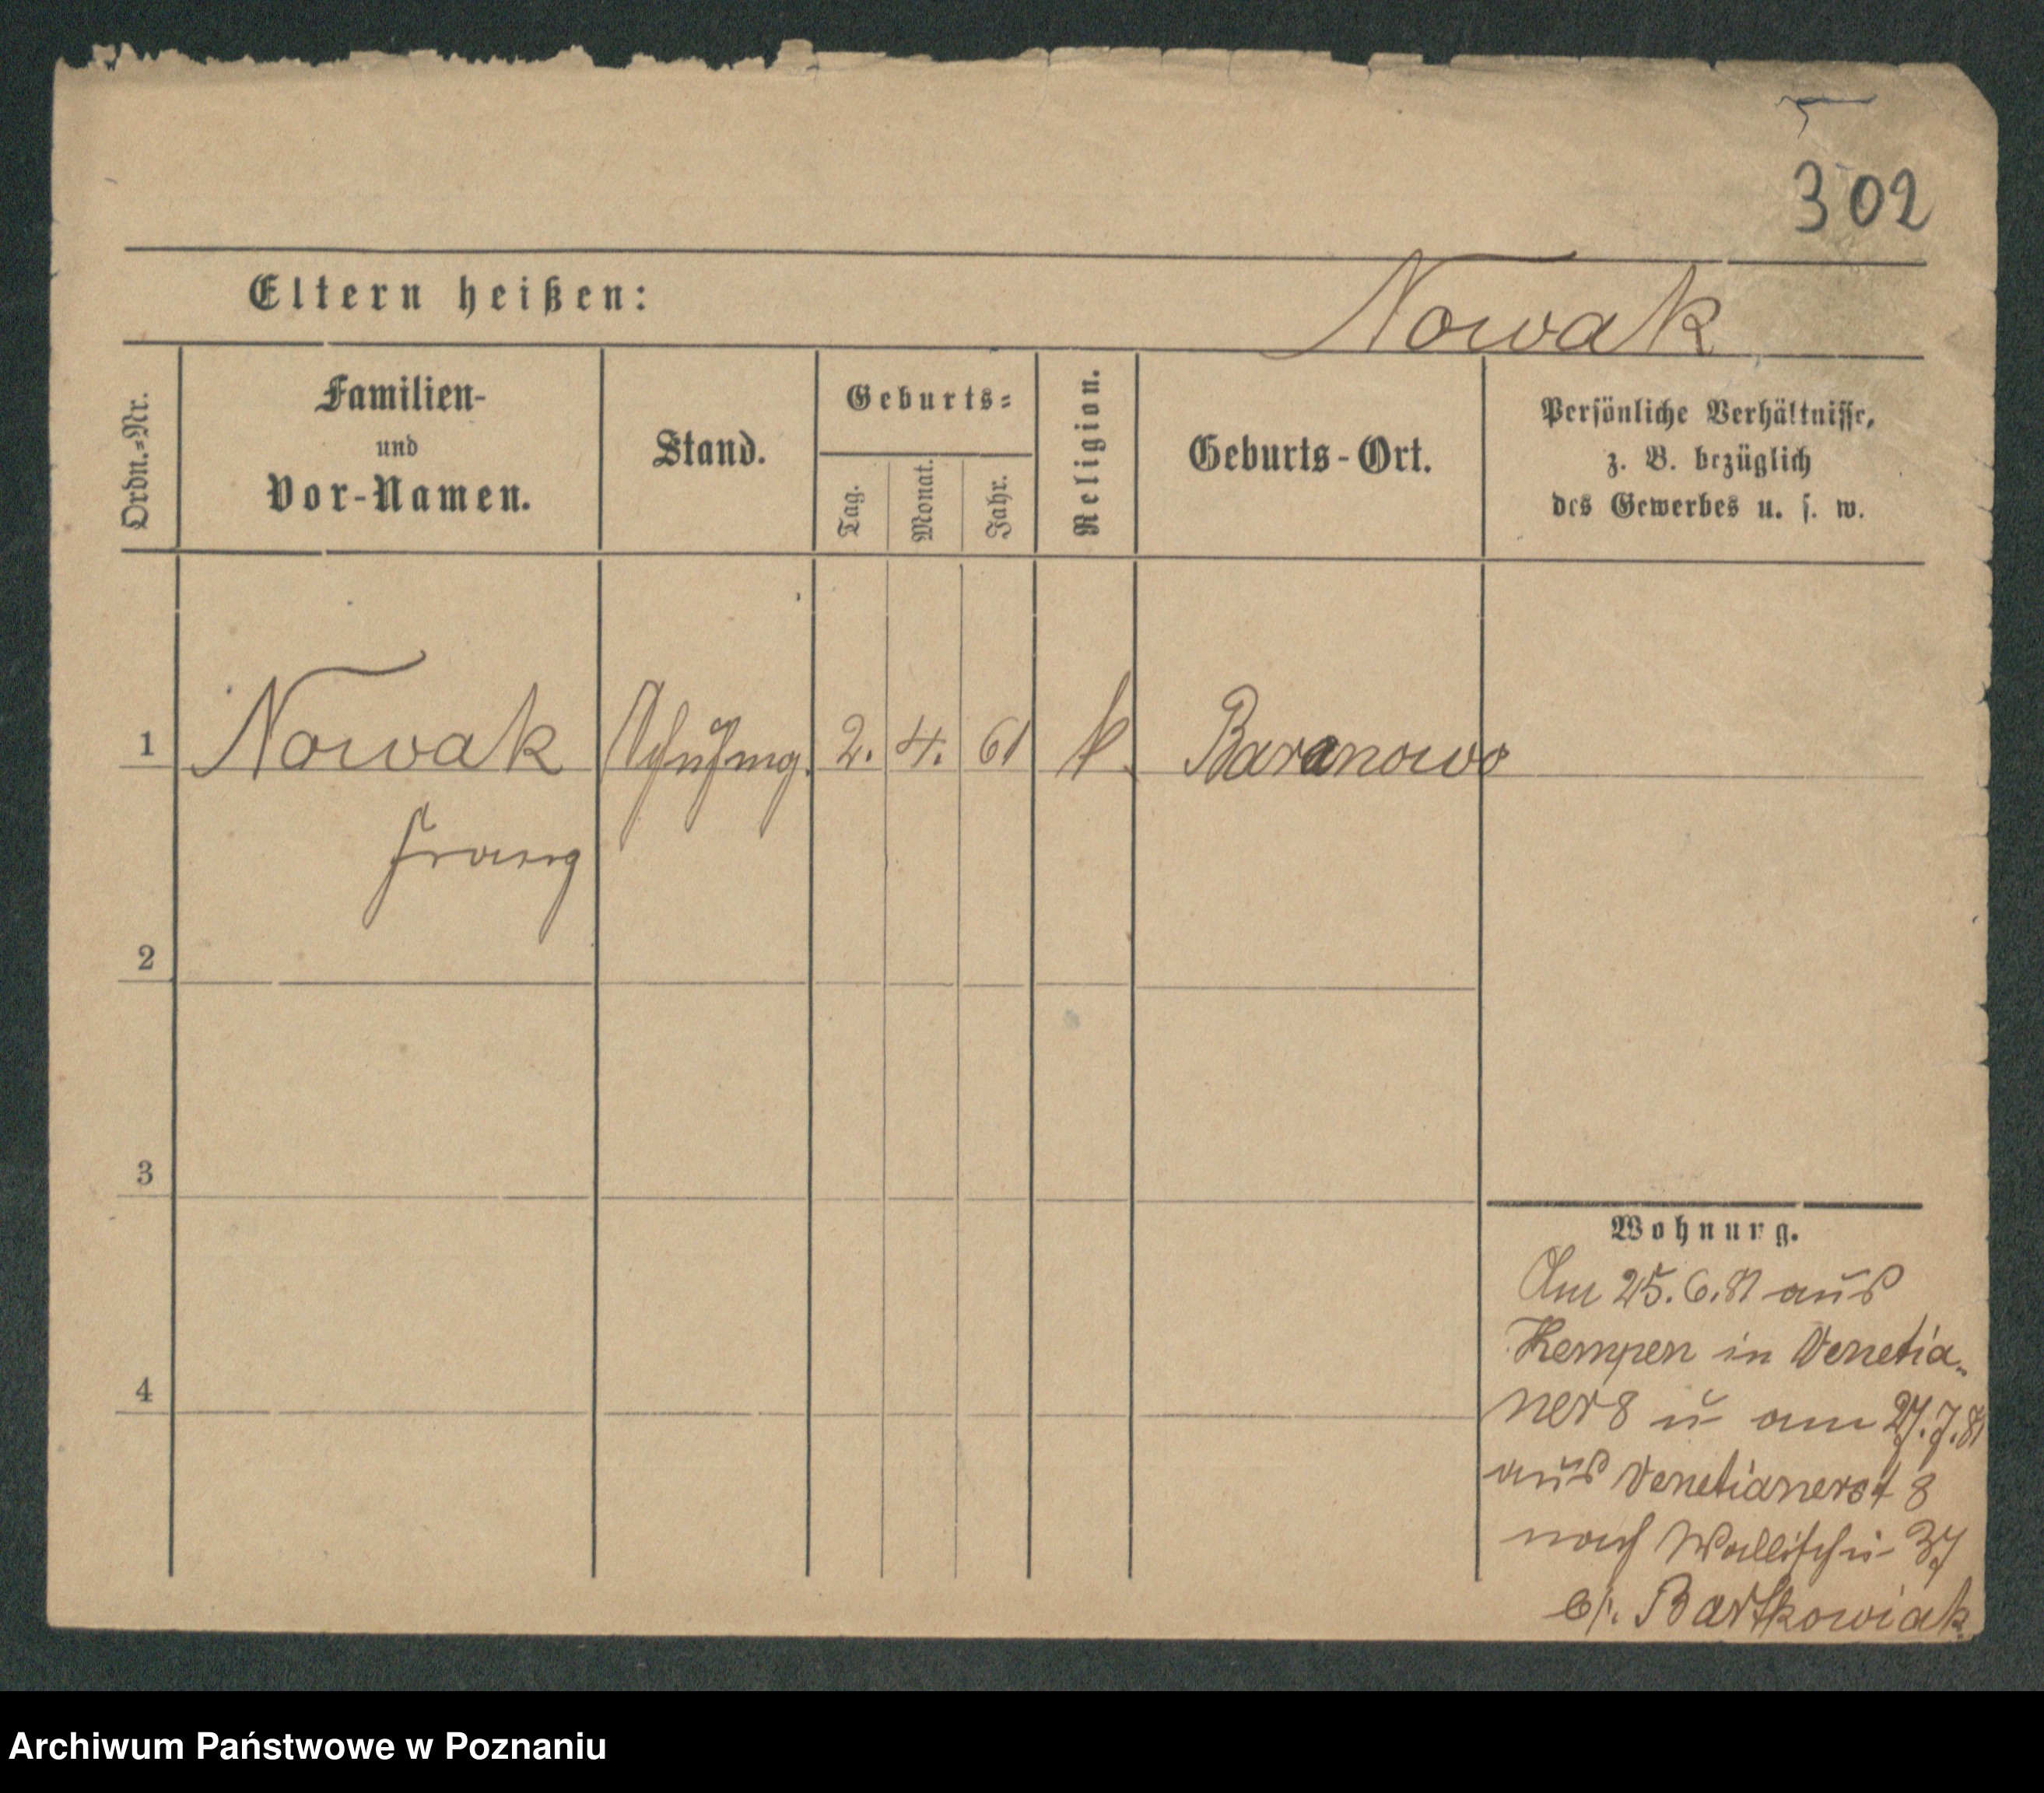 302
Eltern heißen: Nowak
Ordn.=Nr.
Familien-
und
Vor-Namen.
Stand.
Geburts=
Tag.
Monat.
Jahr.
Religion.
Geburts-Ort.
Persönliche Verhältnisse,
z. B. bezüglich
des Gewerbes u. s. w.
1 Nowak Schuhmg. 2. 4. 61 k. Baranowo
Franz
2
3
4
Wohnung.
Am 25.6.81 aus
Kempen in Venetia-
ner 8 u am 27.7.81
aus Venetianerst 8
nach Wallischei 37
b/. Bartkowiak
Archiwum Państwowe w Poznaniu